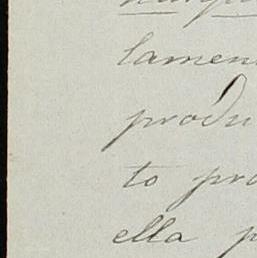 lamen
produ
to pro
ella p